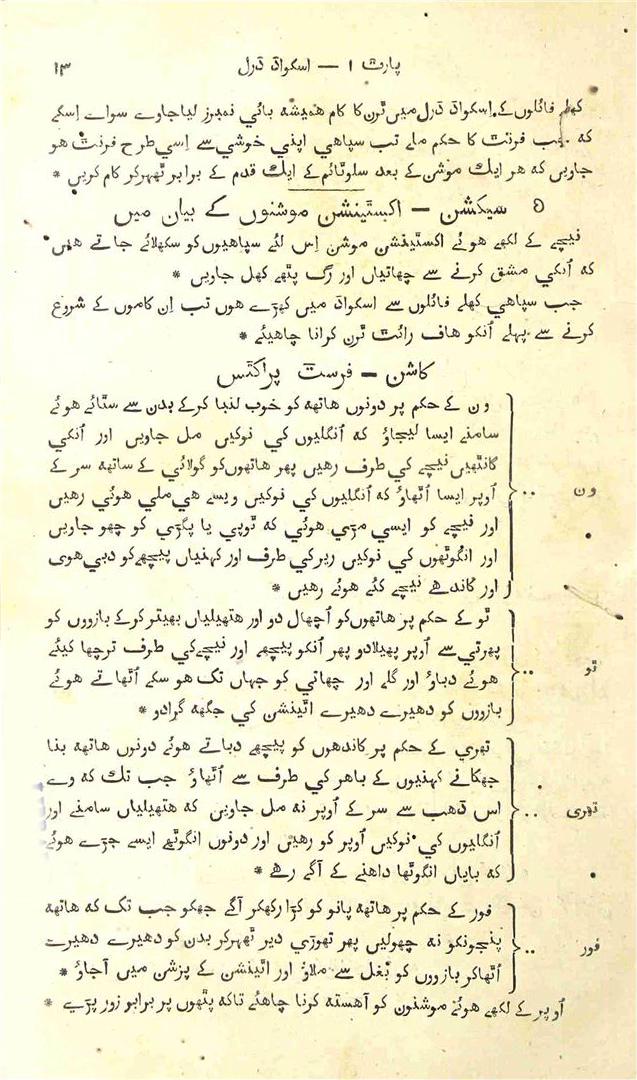 پارٹ ۱ — اسکواڈ ڈرل ۱۳
کھلے فائلوں کے اسکواڈ ڈرل میں ٹرن کا کام همیشه بائی نمبرز لیا جاوے سواے اِسکے
که جب فرنٹ کا حکم ملے تب سپاهي اپني خوشي سے اِسي طرح فرنٹ هو
جاویں که هر ایك موشن کے بعد سلوٹائم کے ایك قدم کے برابر ٹھہرکر کام کریں *
۵ سیکشن — اکسٹینشن موشنوں کے بیان میں
نیچے کے لکھے هوئے اکسٹینشن موشن اِس لئے سپاهیوں کو سکھلائے جاتے هیں
که اُنکي مشق کرنے سے چھاتیاں اور رگ پٹھے کھل جاویں *
جب سپاهي کھلے فائلوں سے اسکواڈ میں کھڑے هوں تب اِن کاموں کے شروع
کرنے سے پہلے اُنکو هاف رائٹ ٹرن کرانا چاهیئے *
کاشن — فرسٹ پراکٹس
ون کے حکم پر دونوں هاتھه کو خوب لنبا کرکے بدن سے سٹائے هوئے
سامنے ایسا لیجاؤ که اُنگلیوں کي نوکیں مل جاویں اور اُنکي
گانٹھیں نیچے کي طرف رهیں پھر هاتھوں کو گولائي کے ساتھه سر کے
ون .. اُوپر ایسا اُٹھاؤ که اُنگلیوں کي نوکیں ویسے هي ملي هوئي رهیں
اور نیچے کو ایسي مڑي هوئي که ٹوپي یا پگڑي کو چھو جاویں
اور انگوٹھوں کي نوکیں زیر کي طرف اور کہنیاں پیچھے کو دبي هوی
اور کاندھے نیچے کئے هوئے رهیں *
ٹو کے حکم پر هاتھوں کو اُچھال دو اور هتھیلیاں بھیتر کرکے بازووں کو
پھرتي سے اُوپر پھیلا دو پھر اُنکو پیچھے اور نیچے کي طرف ترچھا کیئے
ٹو .. هوئے دباؤ اور گلے اور چھاتي کو جہاں تك هو سکے اُٹھاتے هوئے
بازووں کو دھیرے دھیرے اٹینشن کي جگهه گرا دو *
تھري کے حکم پر کاندھوں کو پیچھے دباتے هوئے دونوں هاتھه بنا
جھکانے کہنیوں کے باهر کي طرف سے اُٹھاؤ جب تك که وے
تھری .. اس ڈھب سے سر کے اُوپر نه مل جاویں که هتھیلیاں سامنے اور
اُنگلیوں کي نوکیں اُوپر کو رهیں اور دونوں انگوٹھے ایسے جڑے هوئے
که بایاں انگوٹھا داهنے کے آگے رهے *
فور کے حکم پر هاتھه پانو کو کڑا رکھکر آگے جھکو جب تك که هاتھه
فور .. پنجونکو نه چھولیں پھر تھوڑي دیر ٹھہرکر بدن کو دھیرے دھیرے
اُٹھاکر بازووں کو بغل سے ملاؤ اور اٹینشن کے پزشن میں آجاؤ *
اُوپر کے لکھے هوئے موشنون کو آهسته کرنا چاهئے تاکه پٹھوں پر برابر زور پڑیے *